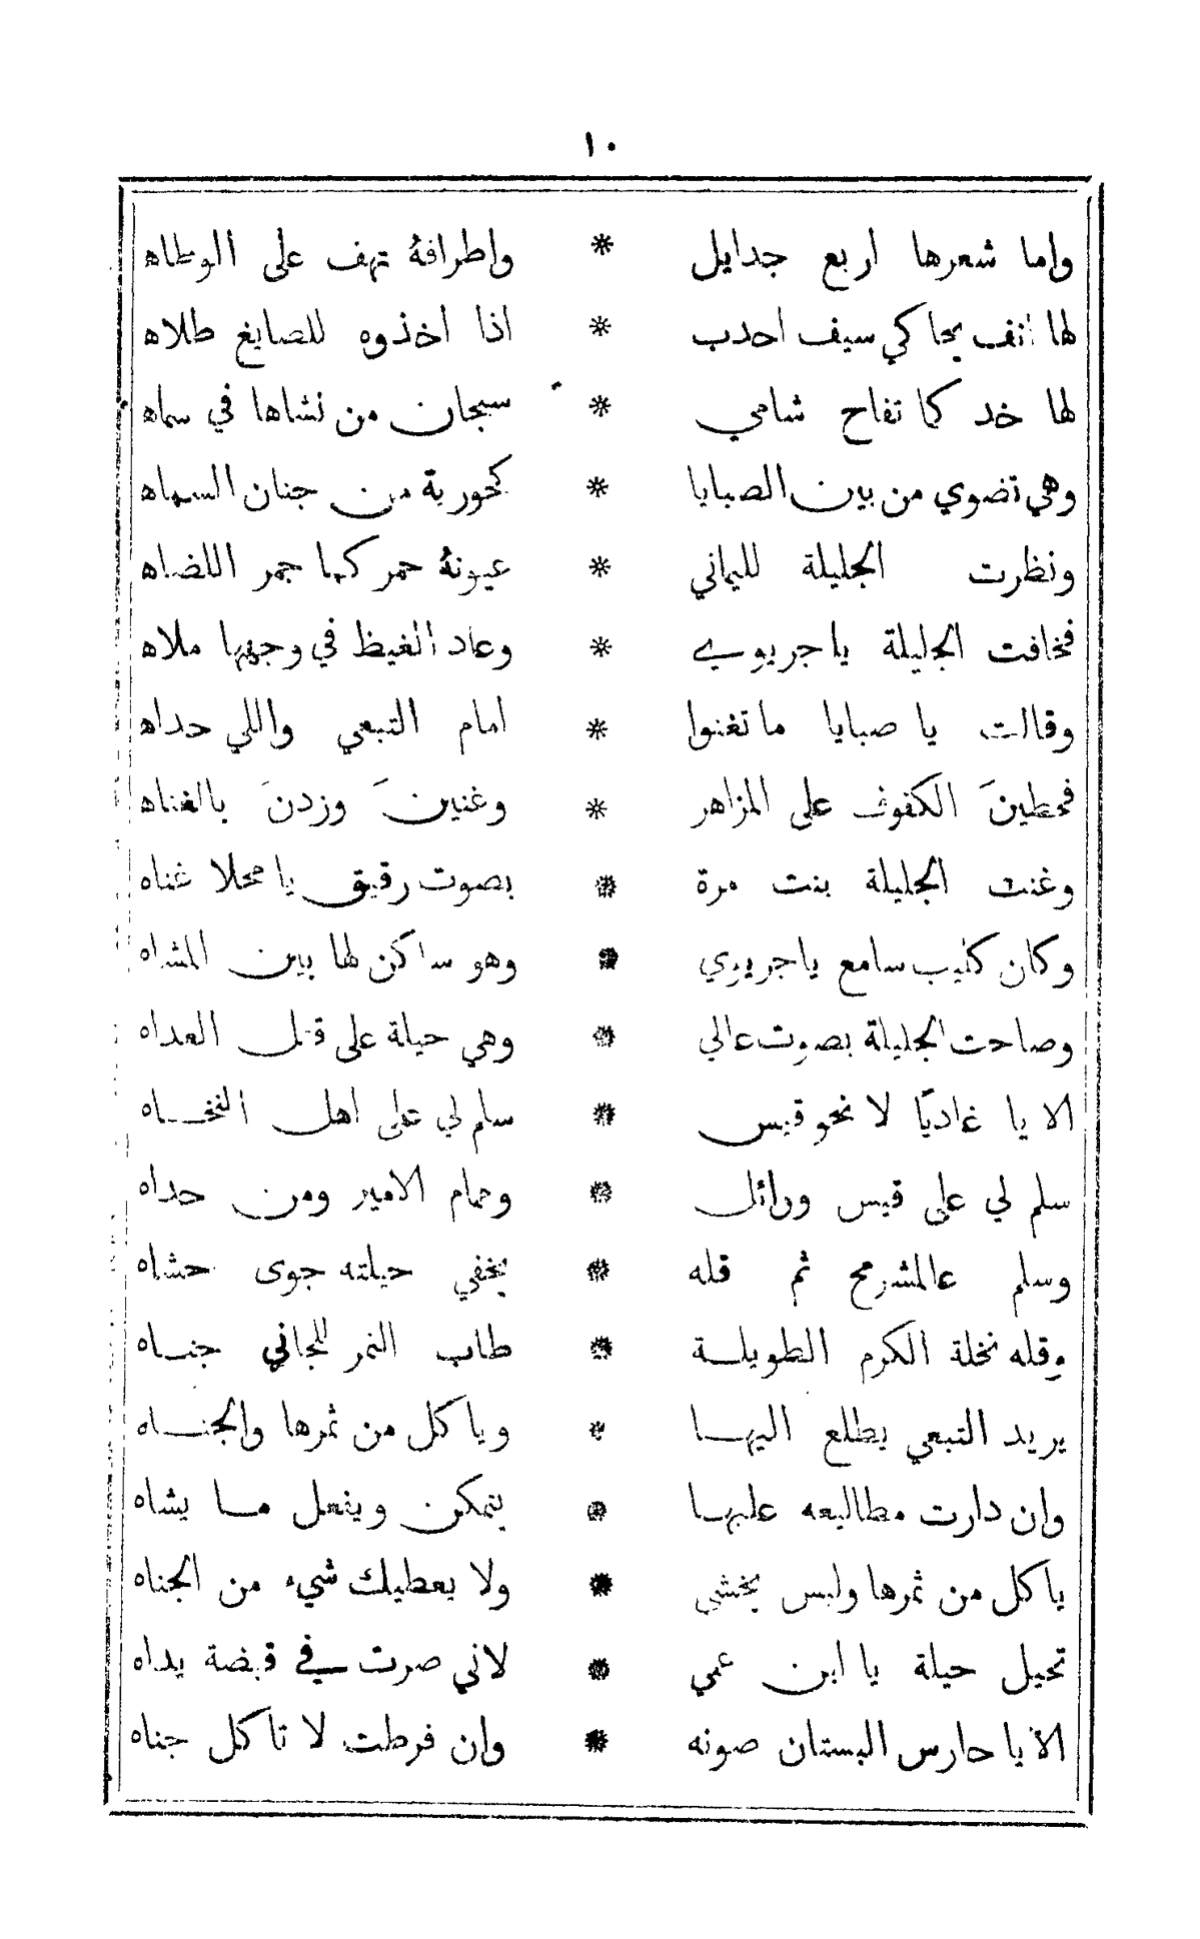 ١٠
واما شعرها اربع جدايل * واطرافهُ تهف على الوطاه
لها انف يحاكي سيف احدب * اذا اخذوه للصايغ طلاه
لها خد كما تفاح شامي * سبحان من نشاها في سماه
وهي تضوي من بين الصبايا * كحورية من جنان السماه
ونظرت الجليلة لليماني * عيونهُ حمر كما جمر اللضاه
فخافت الجليلة يا جريوي * وعاد الغيظ في وجهها ملاه
وقالت يا صبايا ما تغنوا * امام التبعي واللي حداه
فحطينَ الكفوف على المزاهر * وغنينَ وزدنَ بالغناه
وغنت الجليلة بنت مرة * بصوت رقيق يا محلا غناه
وكان كليب سامع يا جريوي * وهو ساكن لها بين المشاه
وصاحت الجليلة بصوت عالي * وهي حيلة على قتل العداه
الا يا غاديًا لا نحو قيس * سلم لي على اهل النخاه
سلم لي على قيس ووائل * وحمام الامير ومن حداه
وسلم عالمشرمح ثم قله * يخفي حيلته جوى حشاه
وقله نخلة الكرم الطويلة * طاب الثمر للجاني جناه
يريد التبعي يطلع اليها * وياكل من ثمرها والجناه
وان دارت مطاليعه عليها * يتمكن ويفعل ما يشاه
ياكل من ثمرها وليس يخشى * ولا يعطيك شيء من الجناه
تحيل حيلة يا ابن عمي * لاني صرت في قبضة يداه
الا يا حارس البستان صونه * وان فرطت لا تاكل جناه